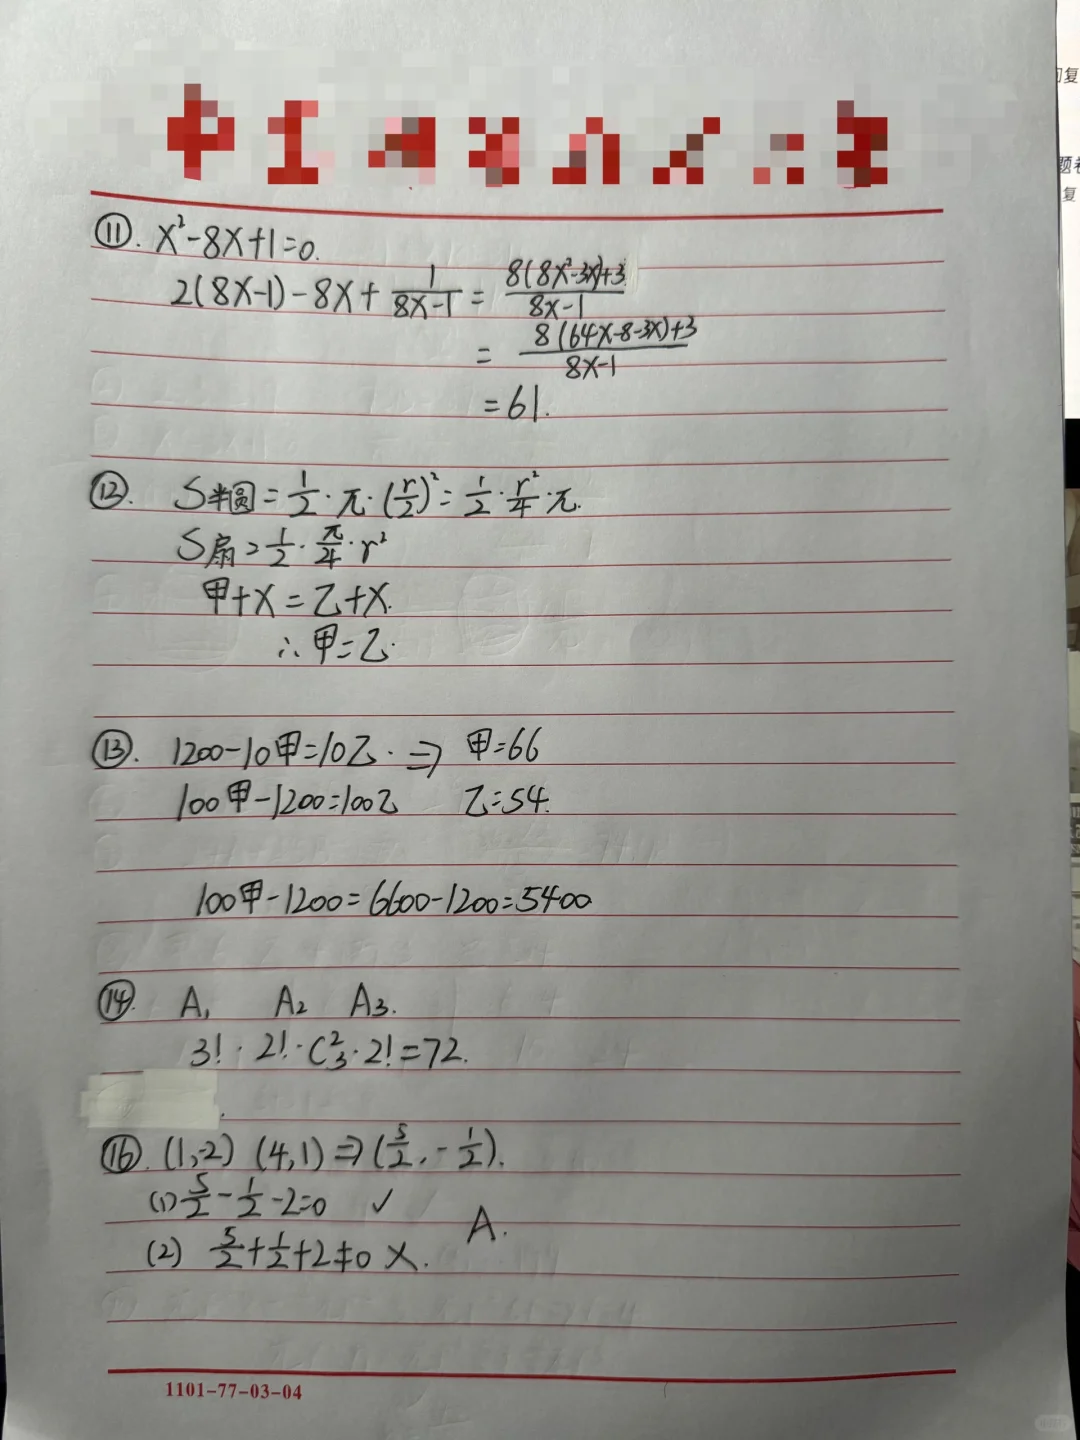 ⑪. x²-8x+1=0.
2(8x-1)-8x+1/(8x-1)=(8(8x²-3x)+3)/(8x-1)
=(8(64x-8-3x)+3)/(8x-1)
=61.
⑫. S半圆=1/2·π·(r/2)²=1/2·r²/4·π.
S扇=1/2·π/4·r²
甲+x=乙+x.
∴甲=乙.
⑬. 1200-10甲=10乙.⇒ 甲=66
100甲-1200=100乙 乙=54.
100甲-1200=6600-1200=5400
⑭. A₁ A₂ A₃.
3!·2!·C₃²·2!=72.
⑯. (1,-2) (4,1)⇒(5/2,-1/2).
(1) 5/2-1/2-2=0 ✓
A.
(2) 5/2+1/2+2≠0 ×.
1101-77-03-04